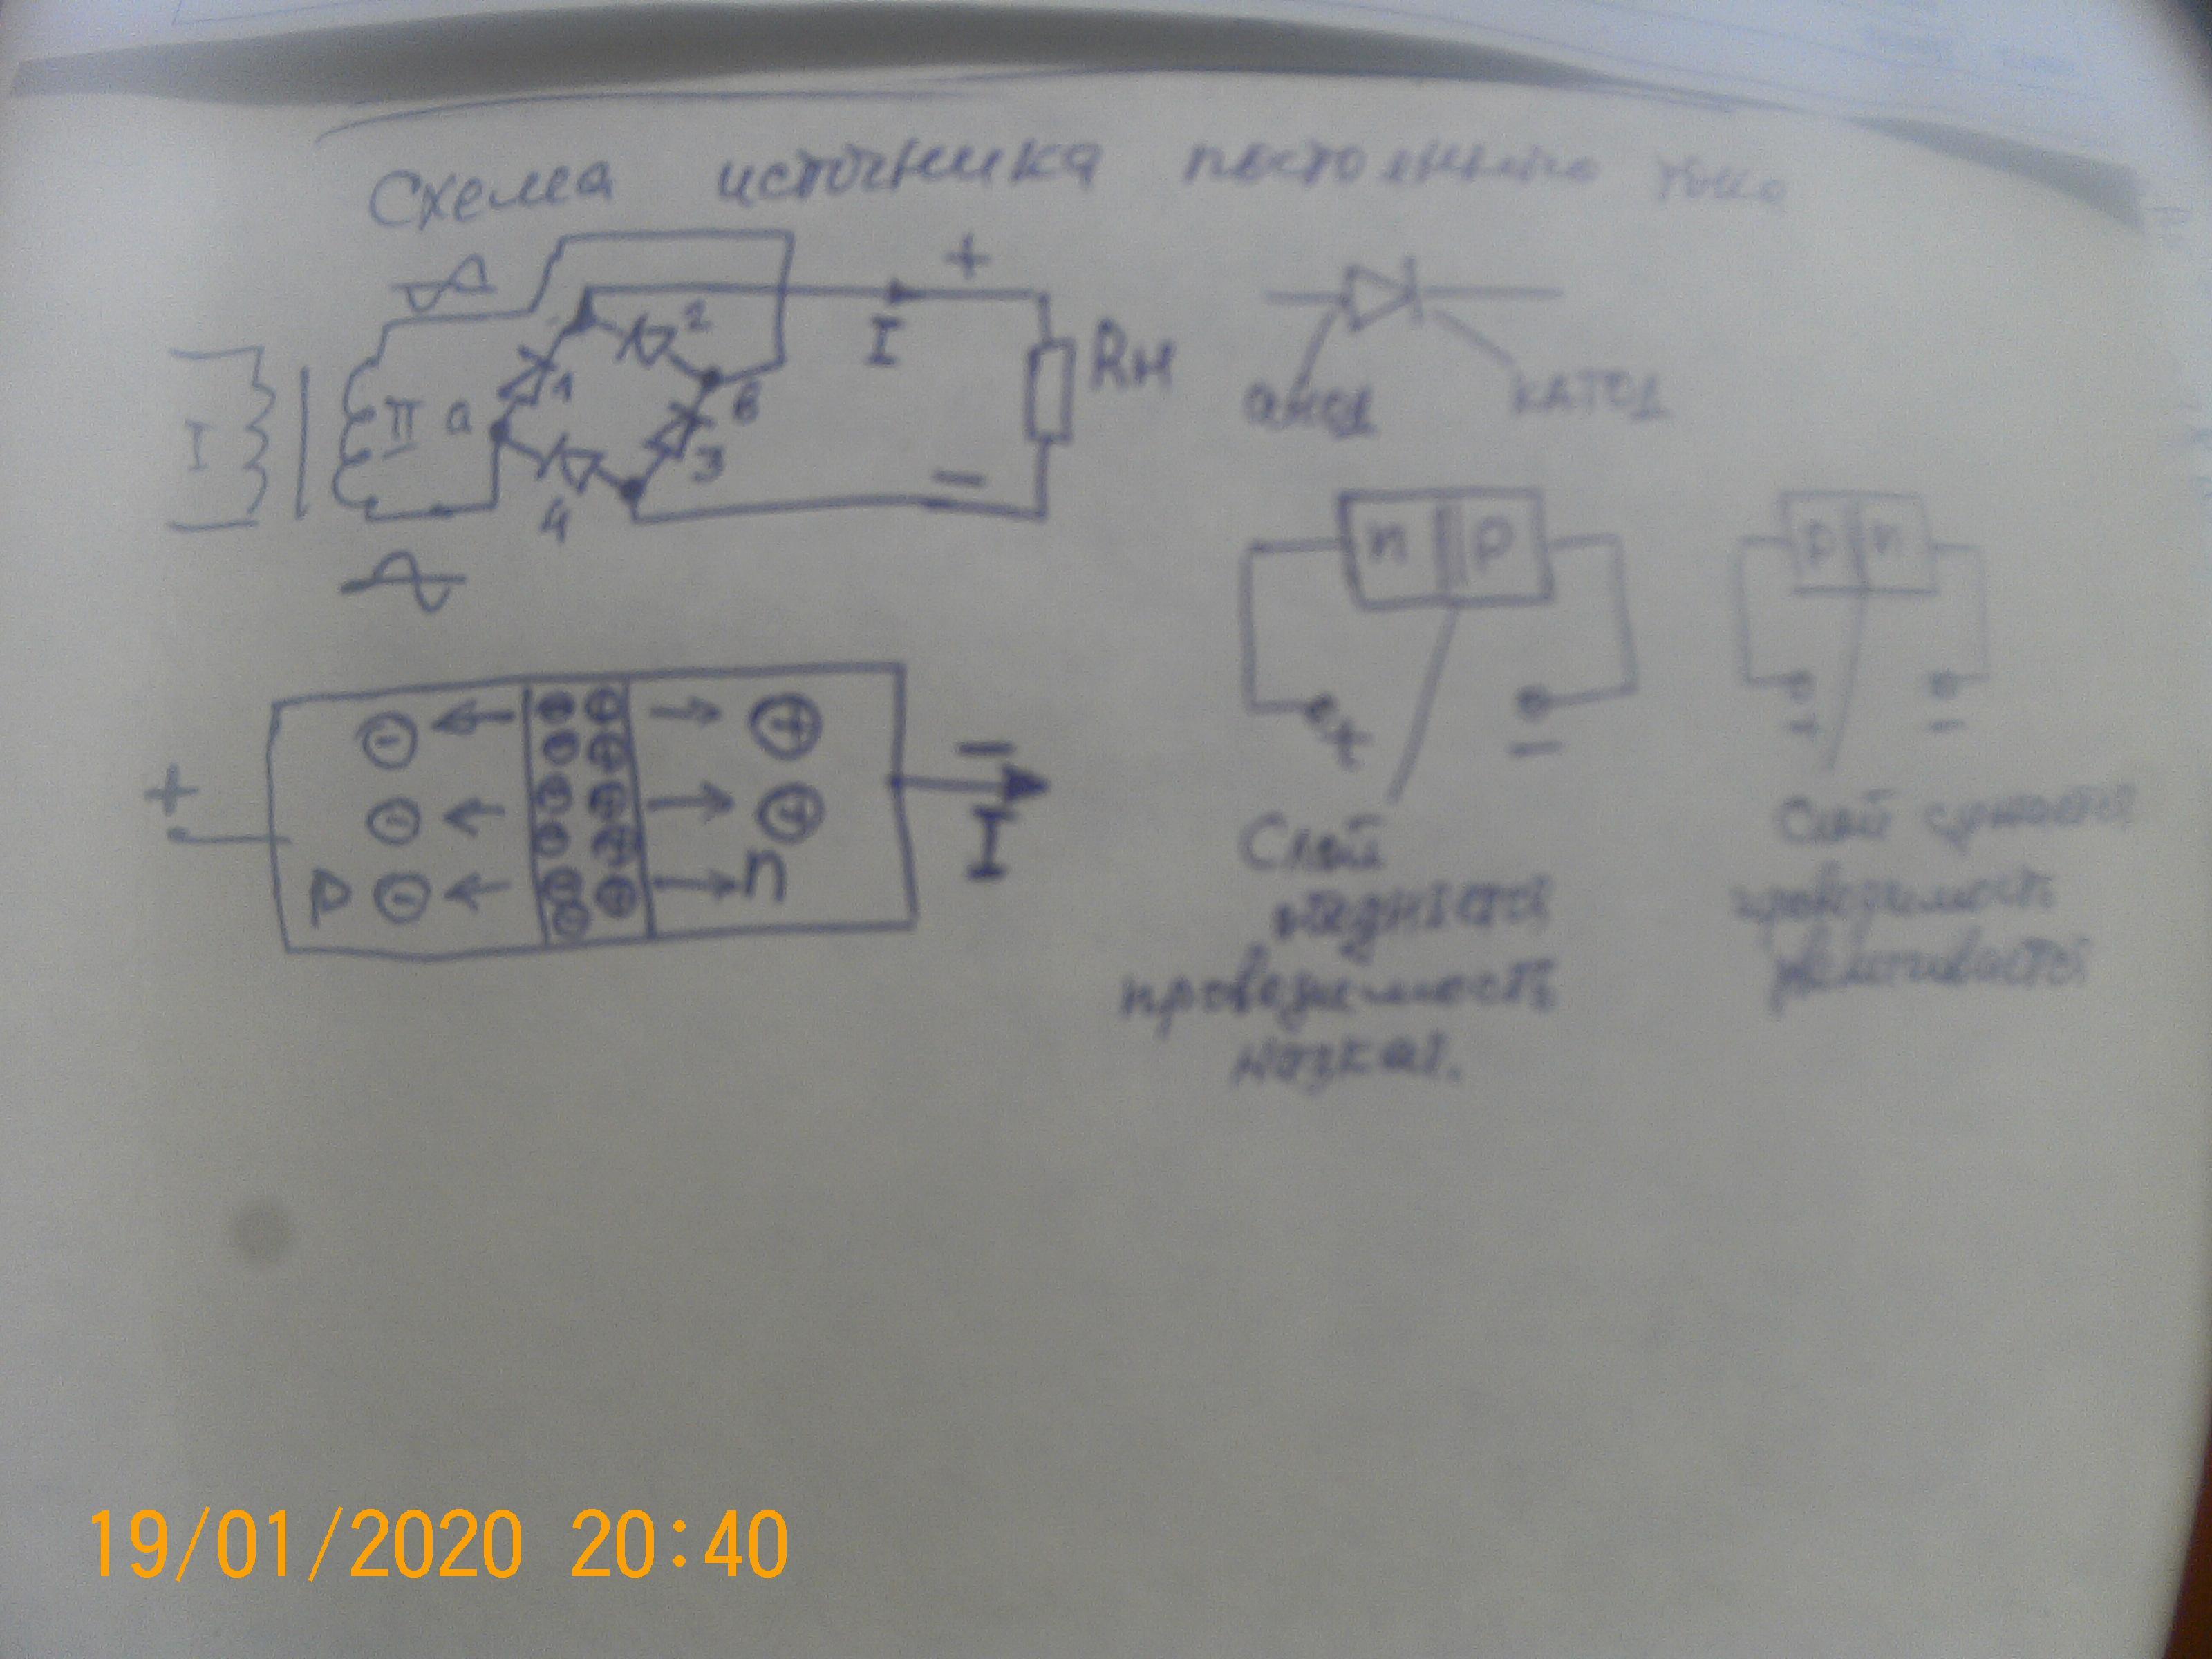 Схема источника постоянного тока
+
I
II
а
1
2
в
3
4
I
Rн
−
анод
катод
n p
+ −
p n
+ −
Слой
проводимость
низкая.
Слой
проводимость
увеличивается
+
p
n
−
I
19/01/2020 20:40